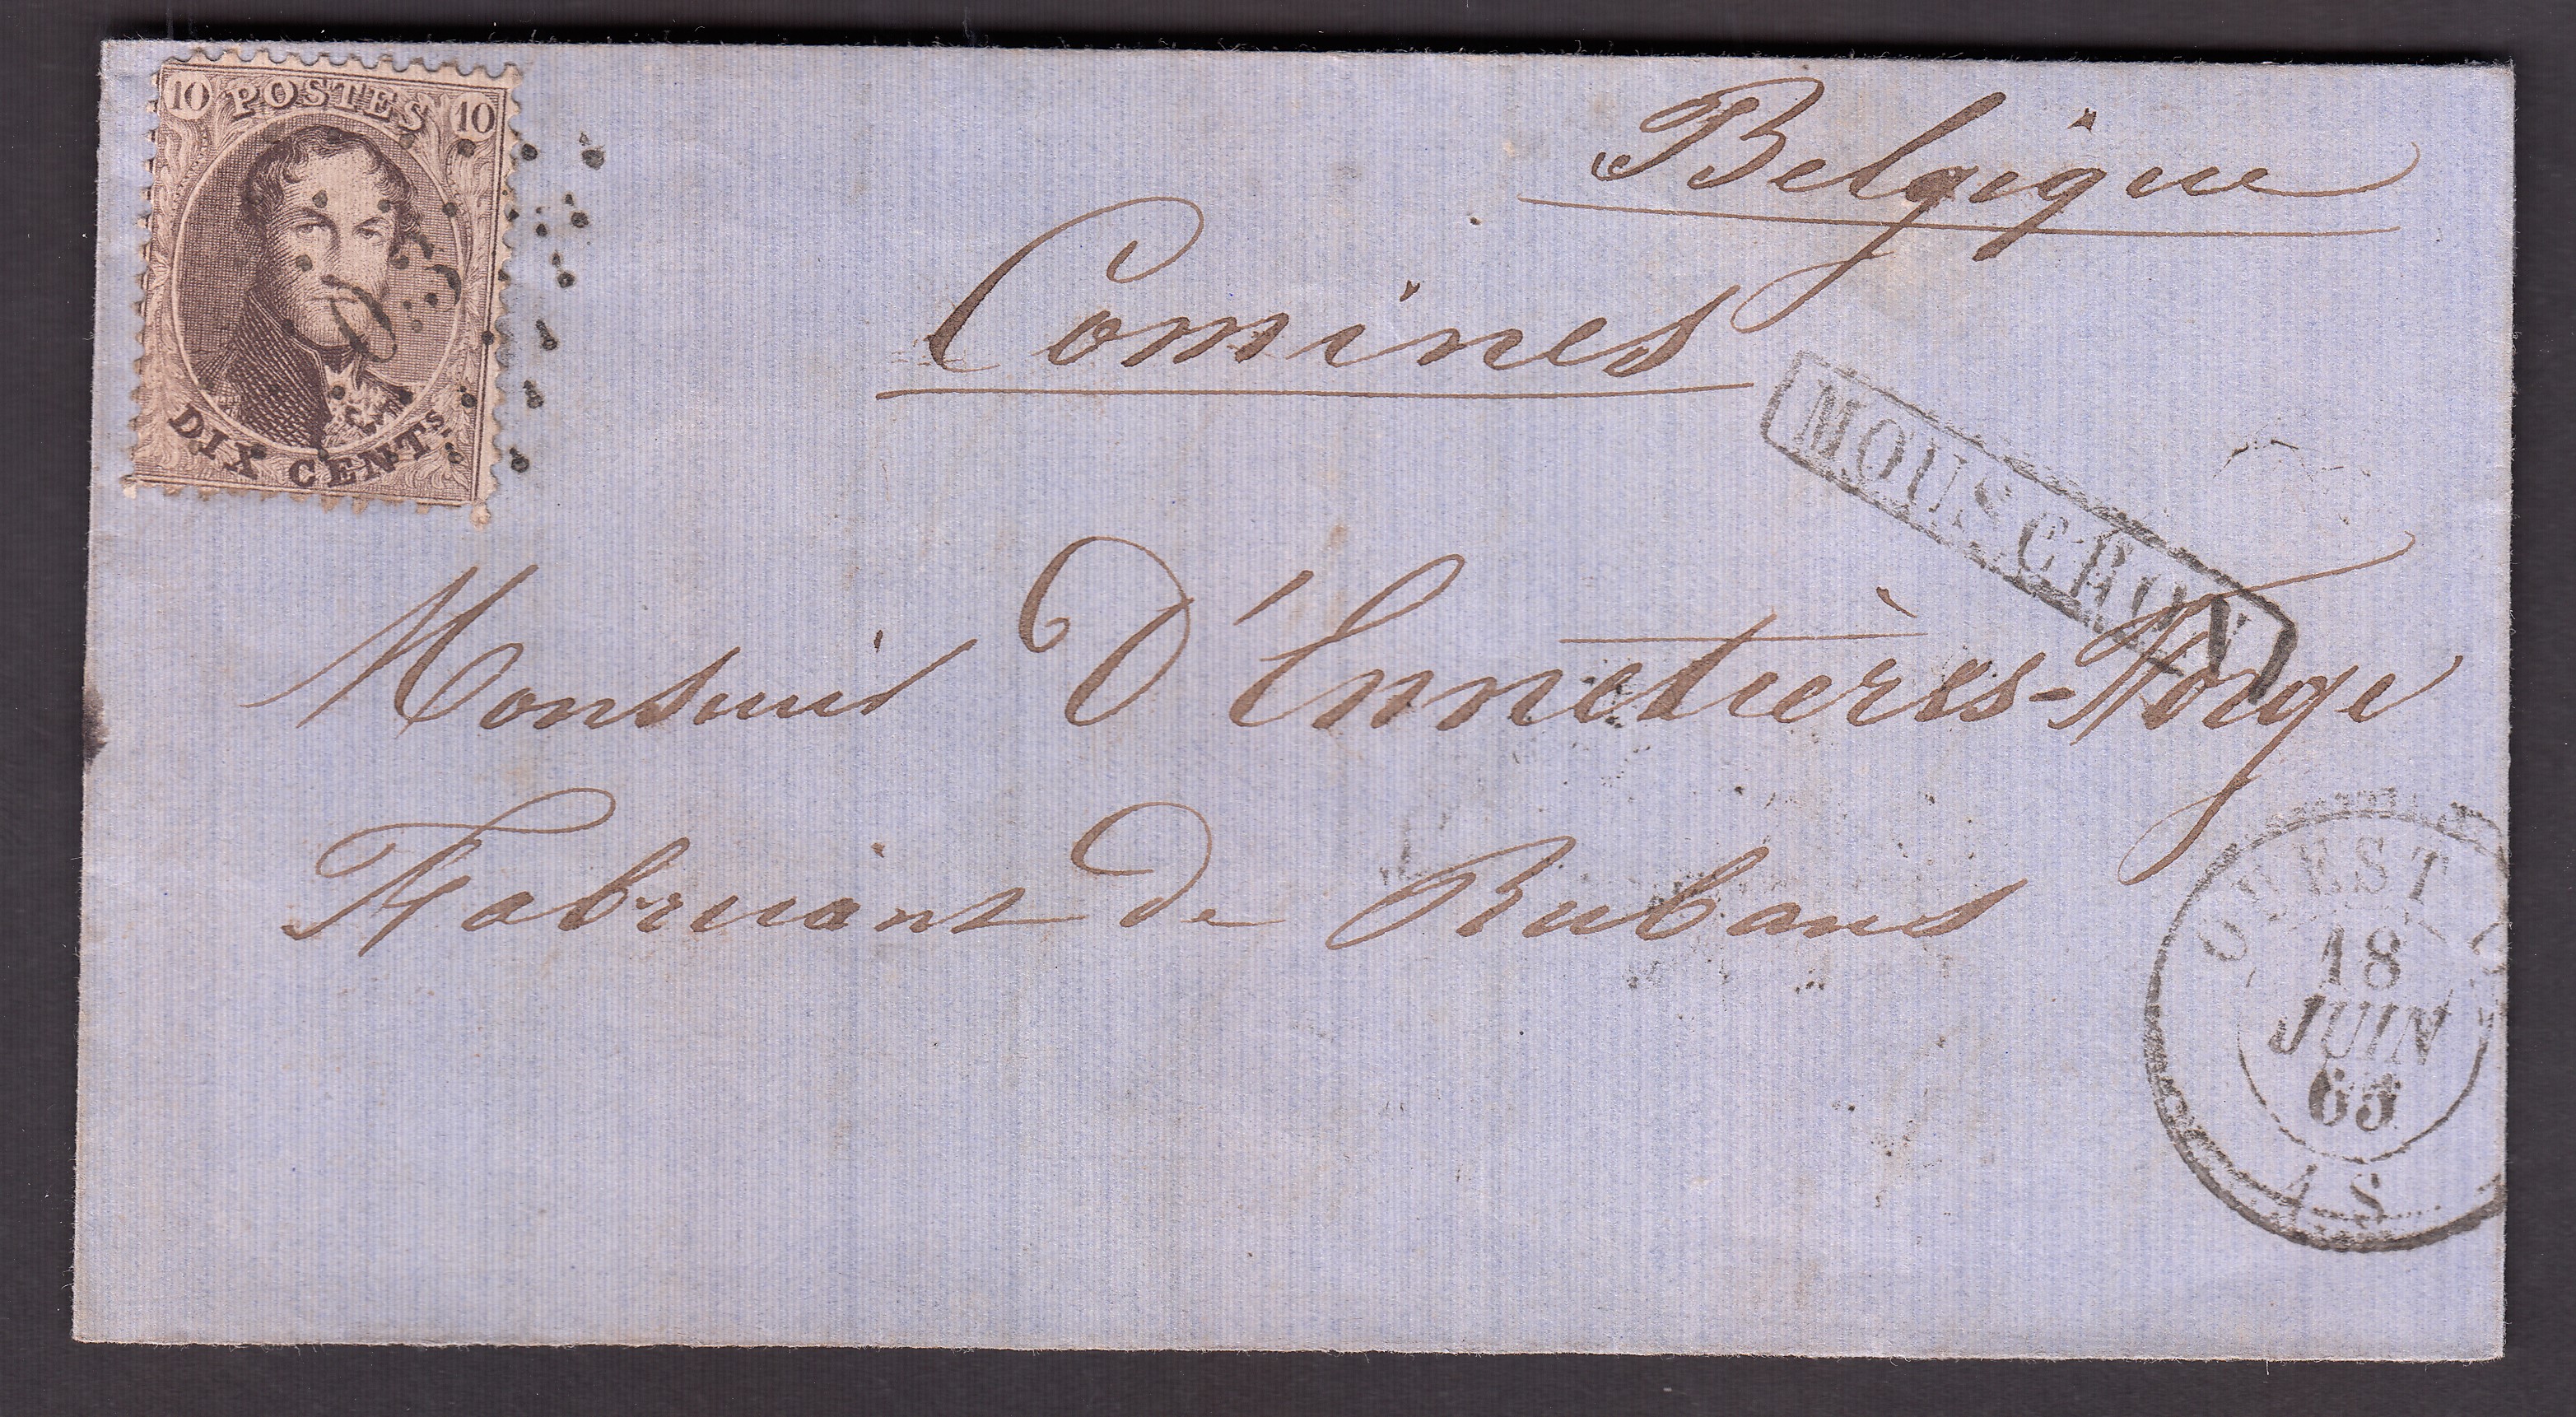 10 POSTES 10
DIX CENTS.
Belgique
Comines
MOUSCRON
Monsieur D'Ennetières-Norge
Fabricant de Rubans
OUEST
18
JUIN
65